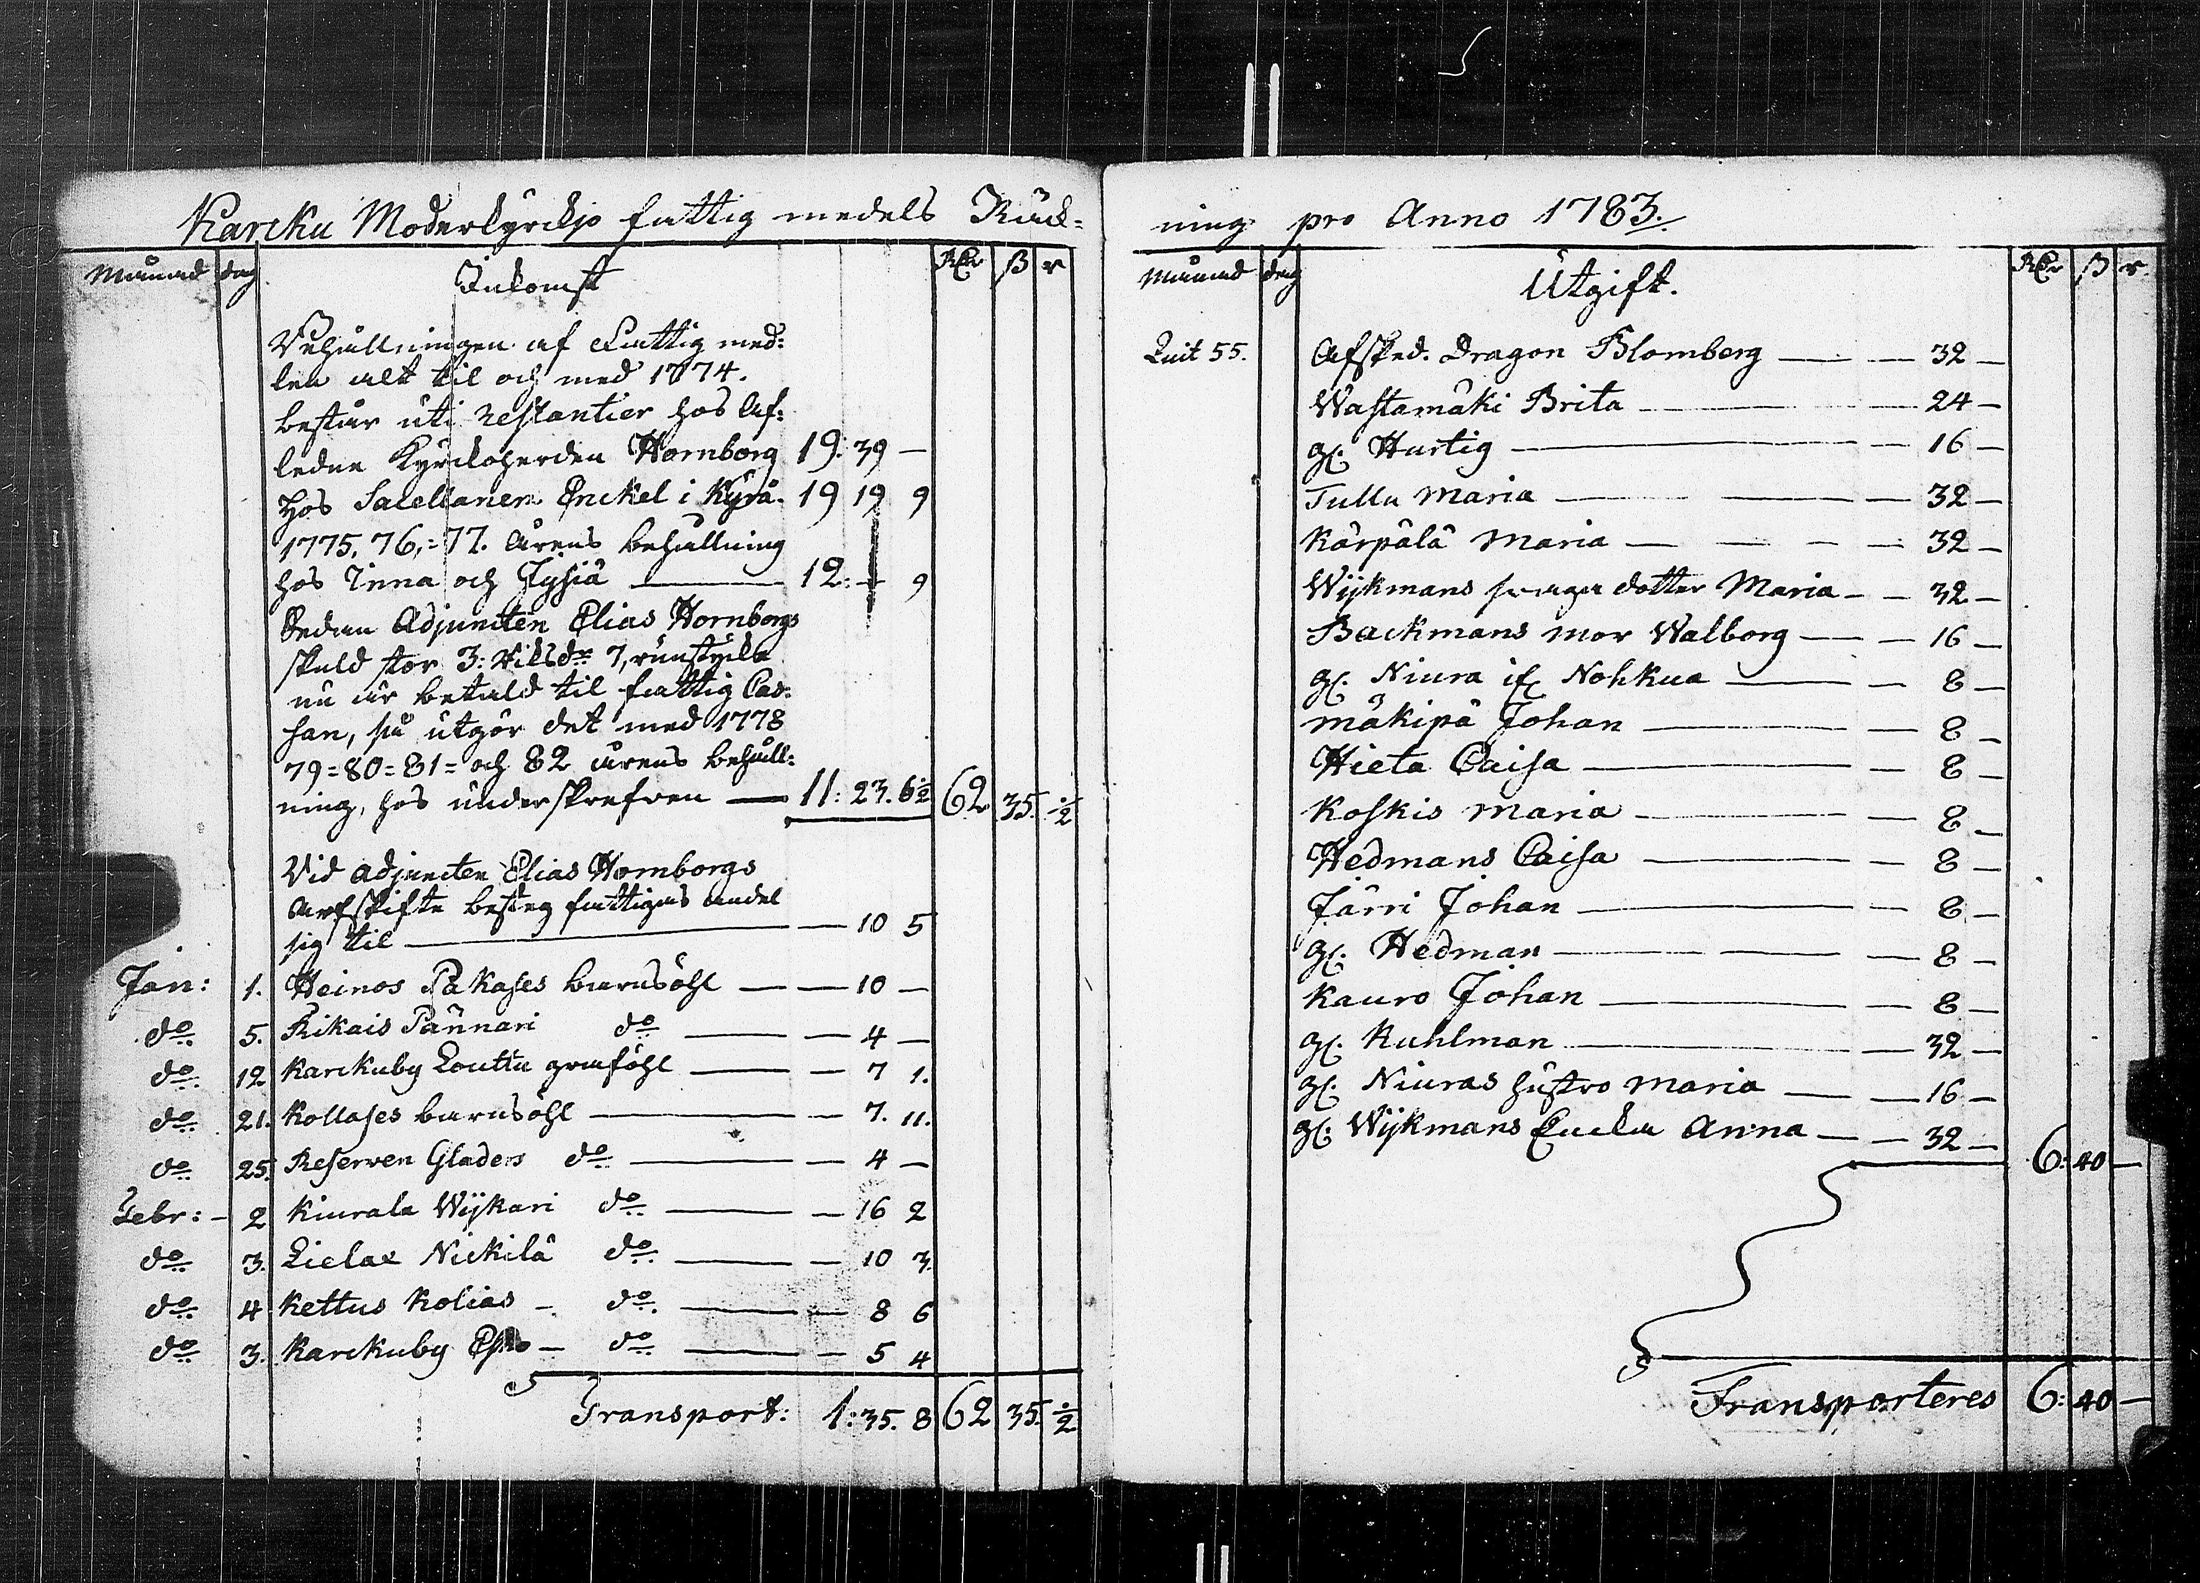 Karcku Moderkyrckjo fattig medels Räck-
Månad dag Inkomst RDr ß r
Behållningen af Fattig med-
len alt til och med 1774.
består uti restantier hos Af-
ledne Kyrckoherden Hornborg 19: 39 —
hos Salellanen Enckel i Kyrö. 19 19 9
1775, 76, = 77. årens behållning
hos Inna och Hyhiä — 12: — 9
Sedan Adjuncten Elias Hornborgs
skuld stor 3: Riksdr 7, runstycke
nu är betald til fattig Cas-
san, så utgör det med 1778
79 = 80 = 81 = och 82 årens behåll-
ning, hos underskrefven — 11: 23. 6½ 62 35. ½
Vid adjuncten Elias Hornborgs
Arfskifte besteg fattigas andel
sig til — 10 5
Jan: 1. Heinos Pakases barnsöhl — 10 —
do 5. Rikais Pånnari do — 4 —
do 12 Karckuby Louttu grafföhl — 7 1.
do 21. Kollases barnsöhl — 7. 11.
do 25. Reserven Gladers do — 4 —
Febr: - 2 Kiurala Wijkari do — 16 2
do 3. Lielax Nickilä do — 10 3.
do 4 Kettus Kolias - do — 8 6
do 3. Karckuby Esko - do — 5 4
Transport: 1: 35. 8 62 35. ½
ning pro Anno 1783.
Månad dag Utgift. RDr ß r.
Quit 55. Afsked. Dragon Blomberg — 32 —
Wastamäki Brita — 24 —
gl. Hurtig — 16 —
Tulla Maria — 32 —
Kärpälä Maria — 32 —
Wijkmans dotter Maria — 32 —
Backmans mor Walborg — 16 —
gl. Niura if Nohkua — 8 —
Mäkipä Johan — 8 —
Hieta Caisa — 8 —
Koskis Maria — 8 —
Hedmans Caisa — 8 —
Järri Johan — 8 —
gl. Hedman — 8 —
Kauro Johan — 8 —
gl. Kuhlman — 32 —
gl. Niuras hustro Maria — 16 —
gl. Wijkmans Encka Anna — 32 — 6: 40 —
Transporteres 6: 40 —